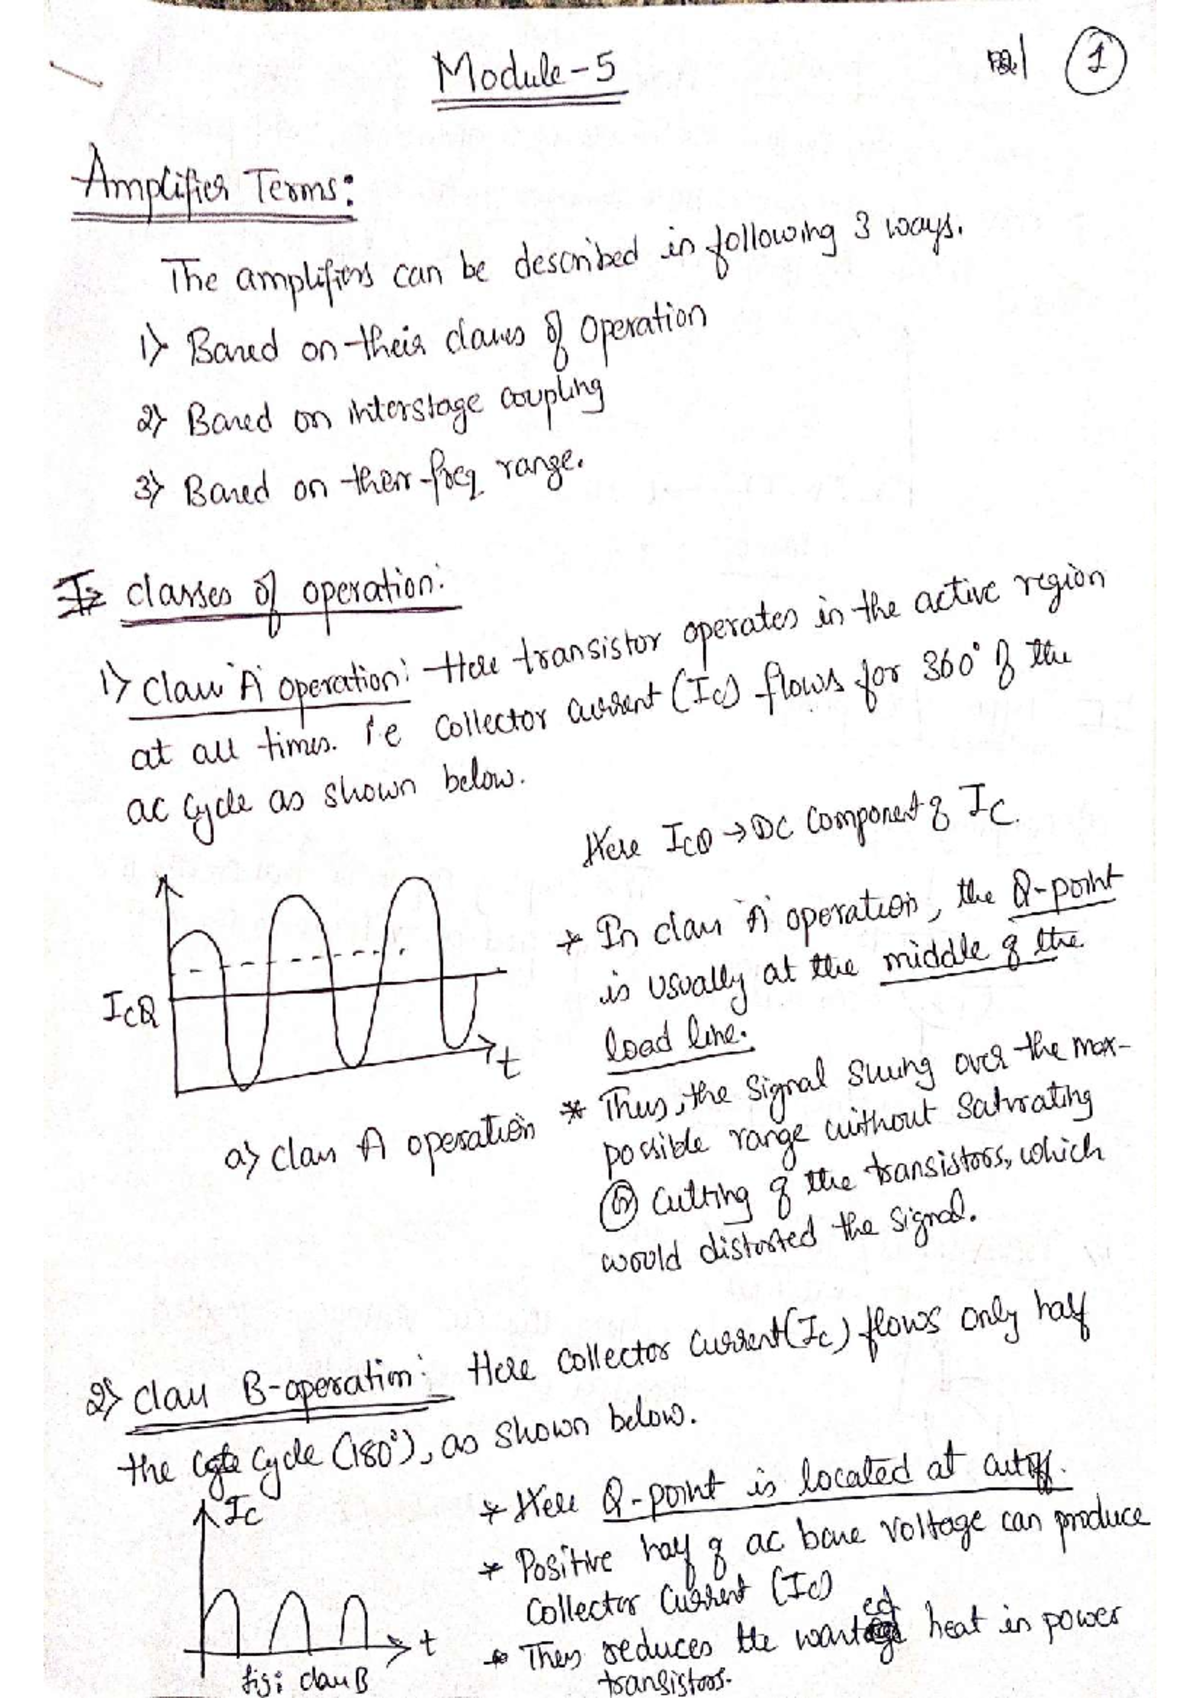 Module-5
1
Amplifier Terms:
The amplifiers can be described in following 3 ways.
1) Based on their classes of operation
2) Based on interstage coupling
3) Based on their freq range.
classes of operation:
1) Class 'A' operation: Here transistor operates in the active region
at all times. i.e collector current (Ic) flows for 360° of the
ac cycle as shown below.
Here ICQ → DC component of IC.
* In class 'A' operation, the Q-point
is usually at the middle of the
load line.
ICQ
t
a) class A operation
* Thus, the signal swing over the max-
possible range without saturating
or cutting of the transistors, which
would distorted the signal.
2) Class B-operation: Here collector current (Ic) flows only half
the cycle (180°), as shown below.
Ic
t
fig: class B
* Here Q-point is located at cutoff.
* Positive half of ac base voltage can produce
collector current (Ic)
* Thus reduces the wanted heat in power
transistors.